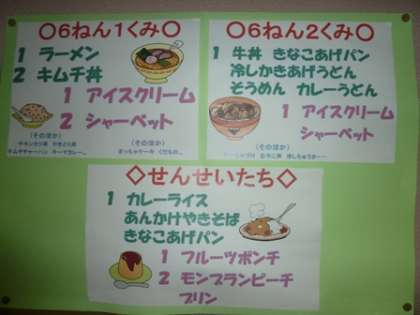 〇6ねん1くみ〇
1 ラーメン
2 キムチ丼
1 アイスクリーム
2 シャーベット
(そのほか)
〇6ねん2くみ〇
1 牛丼 きなこあげパン
冷しかきあげうどん
そうめん カレーうどん
1 アイスクリーム
シャーベット
(そのほか)
◇せんせいたち◇
1 カレーライス
あんかけやきそば
きなこあげパン
1 フルーツポンチ
2 モンブランピーチ
プリン